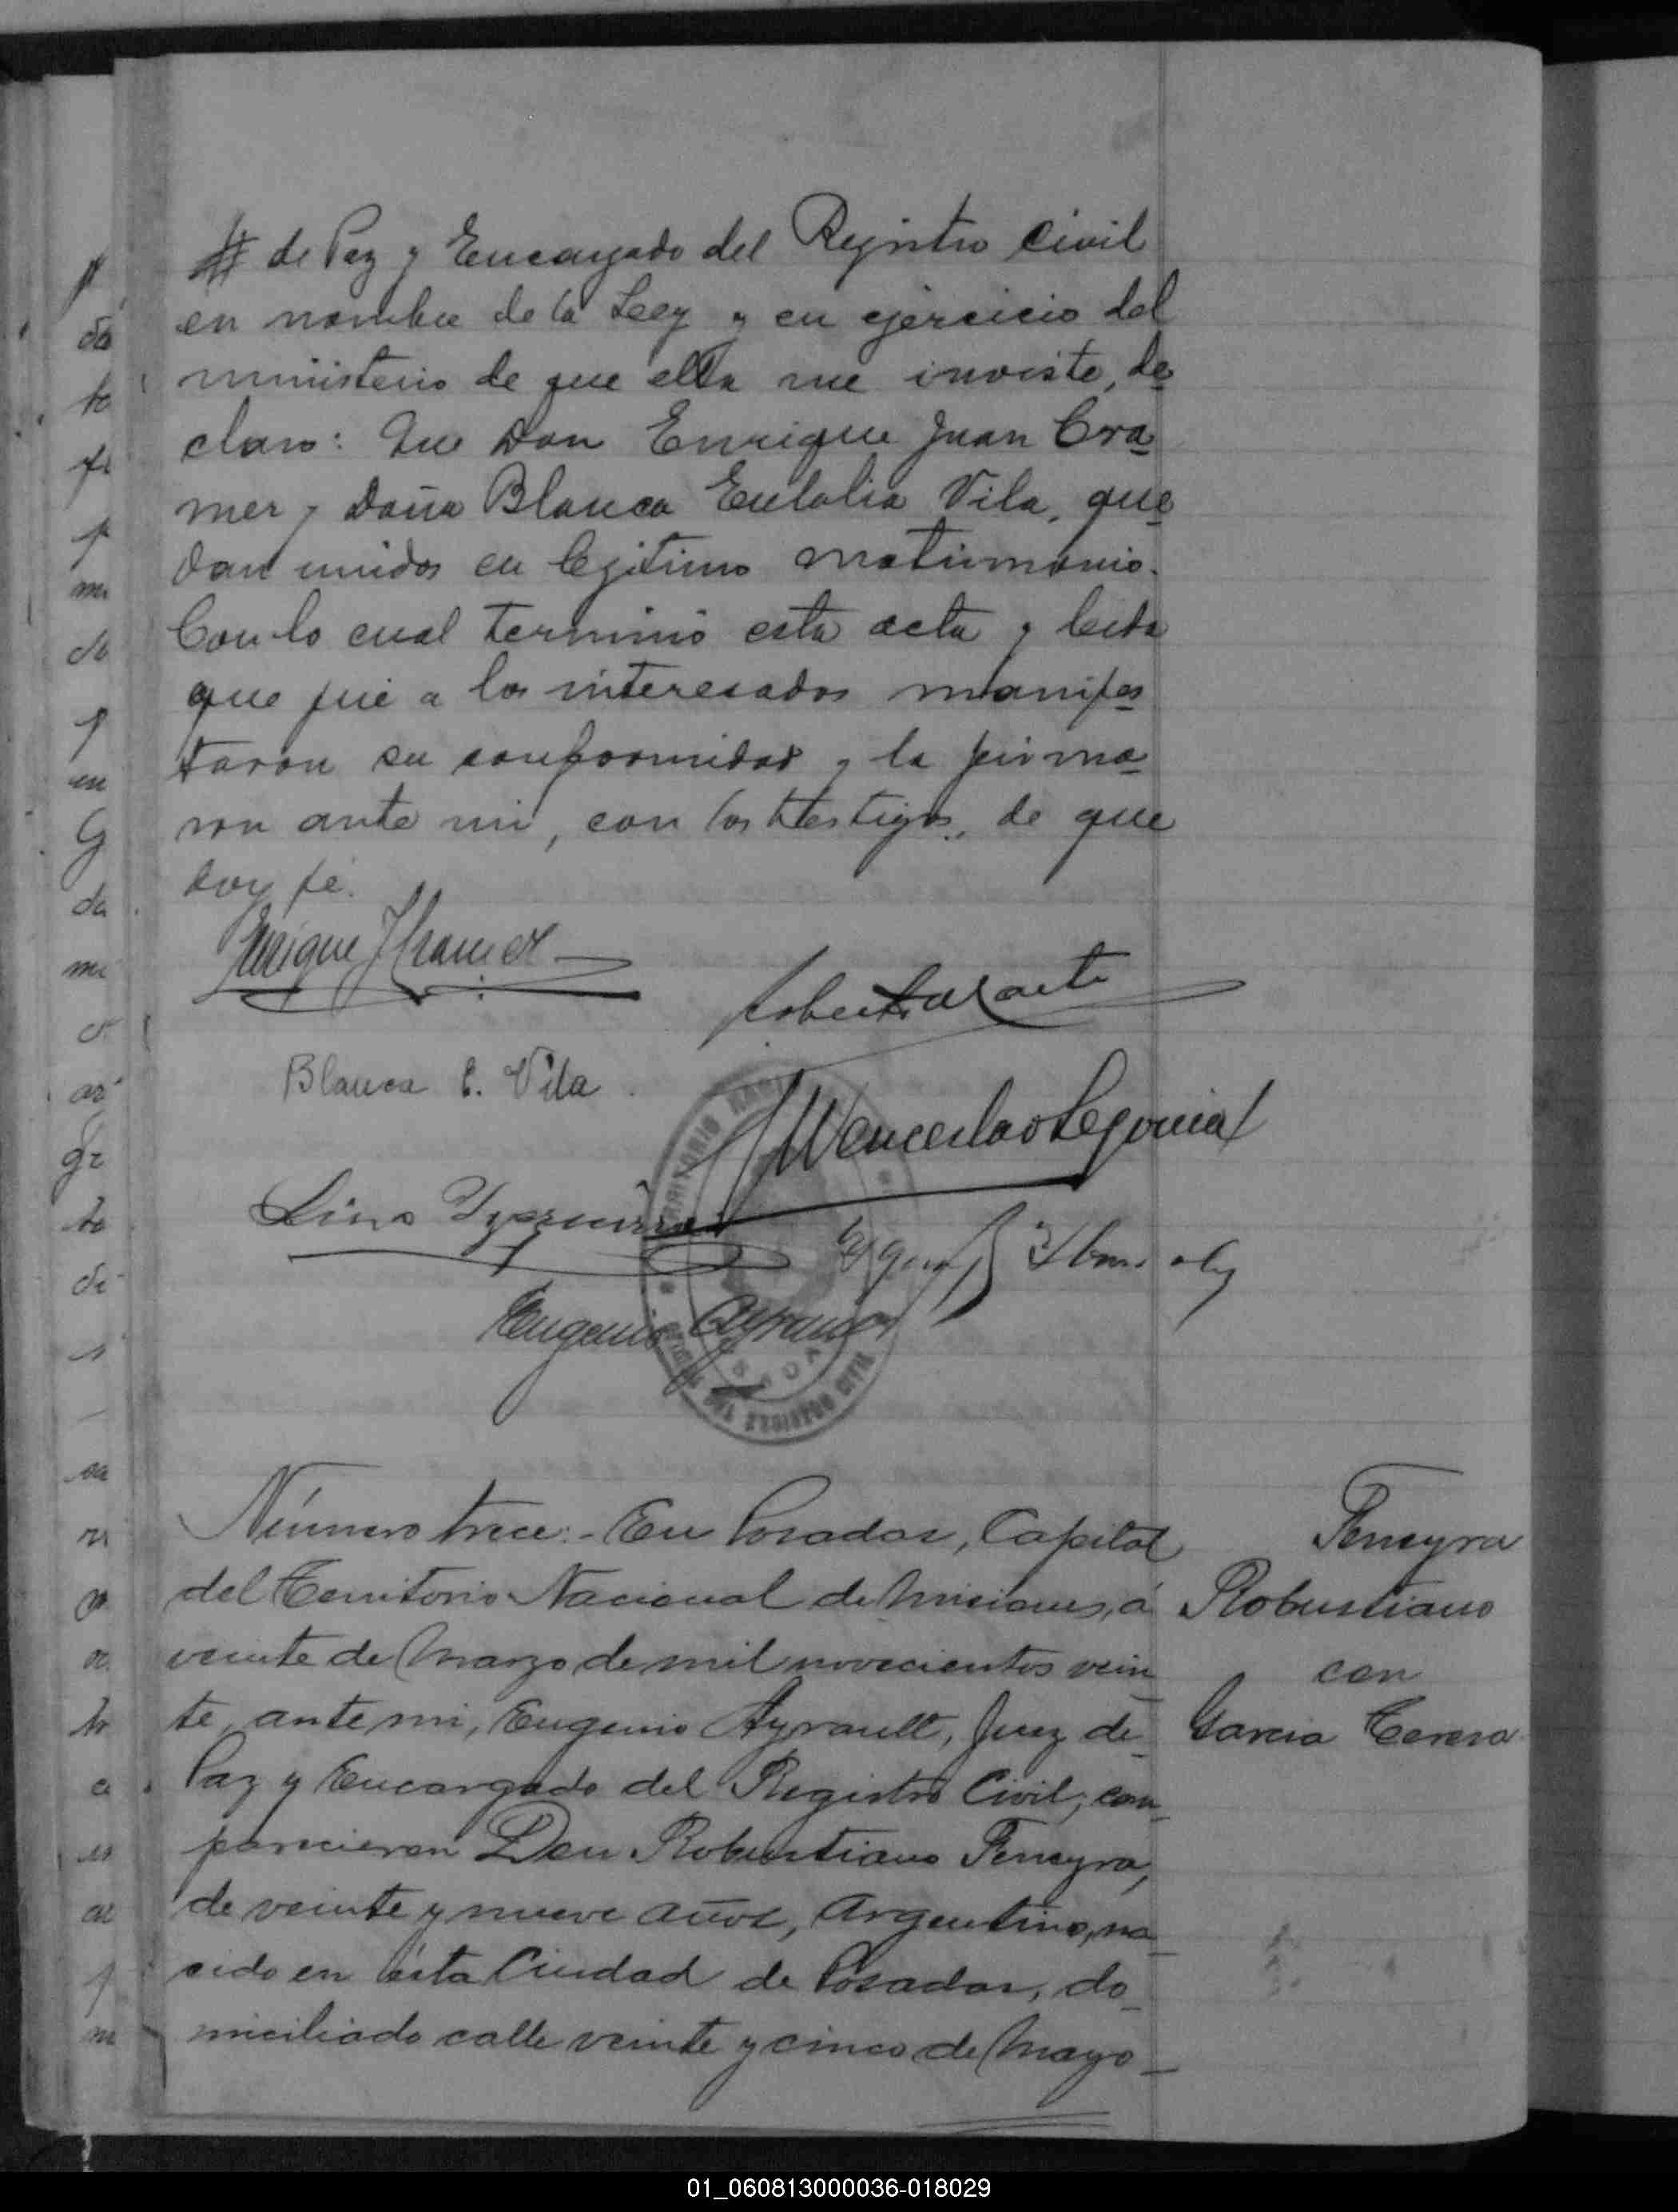 # de Paz y Encargado del Registro Civil
en nombre de la Ley y en ejercicio del
ministerio de que ella me inviste, de
claro: Que Don Enrique Juan Cra
mer y Doña Blanca Eulalia Vila, que
dan unidos en legitimo matrimonio.
Con lo cual terminó esta acta y leida
que fué a los interesados manifes
taron su conformidad y la firma
ron ante mi, con los testigos, de que
doy fé.
Enrique J Cramer
Blanca E. Vila
Wenceslao Segovia
Lino
Eugenio Ayrault
Número trece:- En Posadas, Capital
del Territorio Nacional de Misiones, á
veinte de Marzo de mil novecientos vein
te, ante mi, Eugenio Ayrault, Juez de
Paz y Encargado del Registro Civil, com
parecieron Don Robustiano Ferreyra,
de veinte y nueve años, Argentino, na
cido en ésta Ciudad de Posadas, do
miciliado calle veinte y cinco de Mayo
Ferreyra
Robustiano
con
Garcia Teresa
01_060813000036-018029